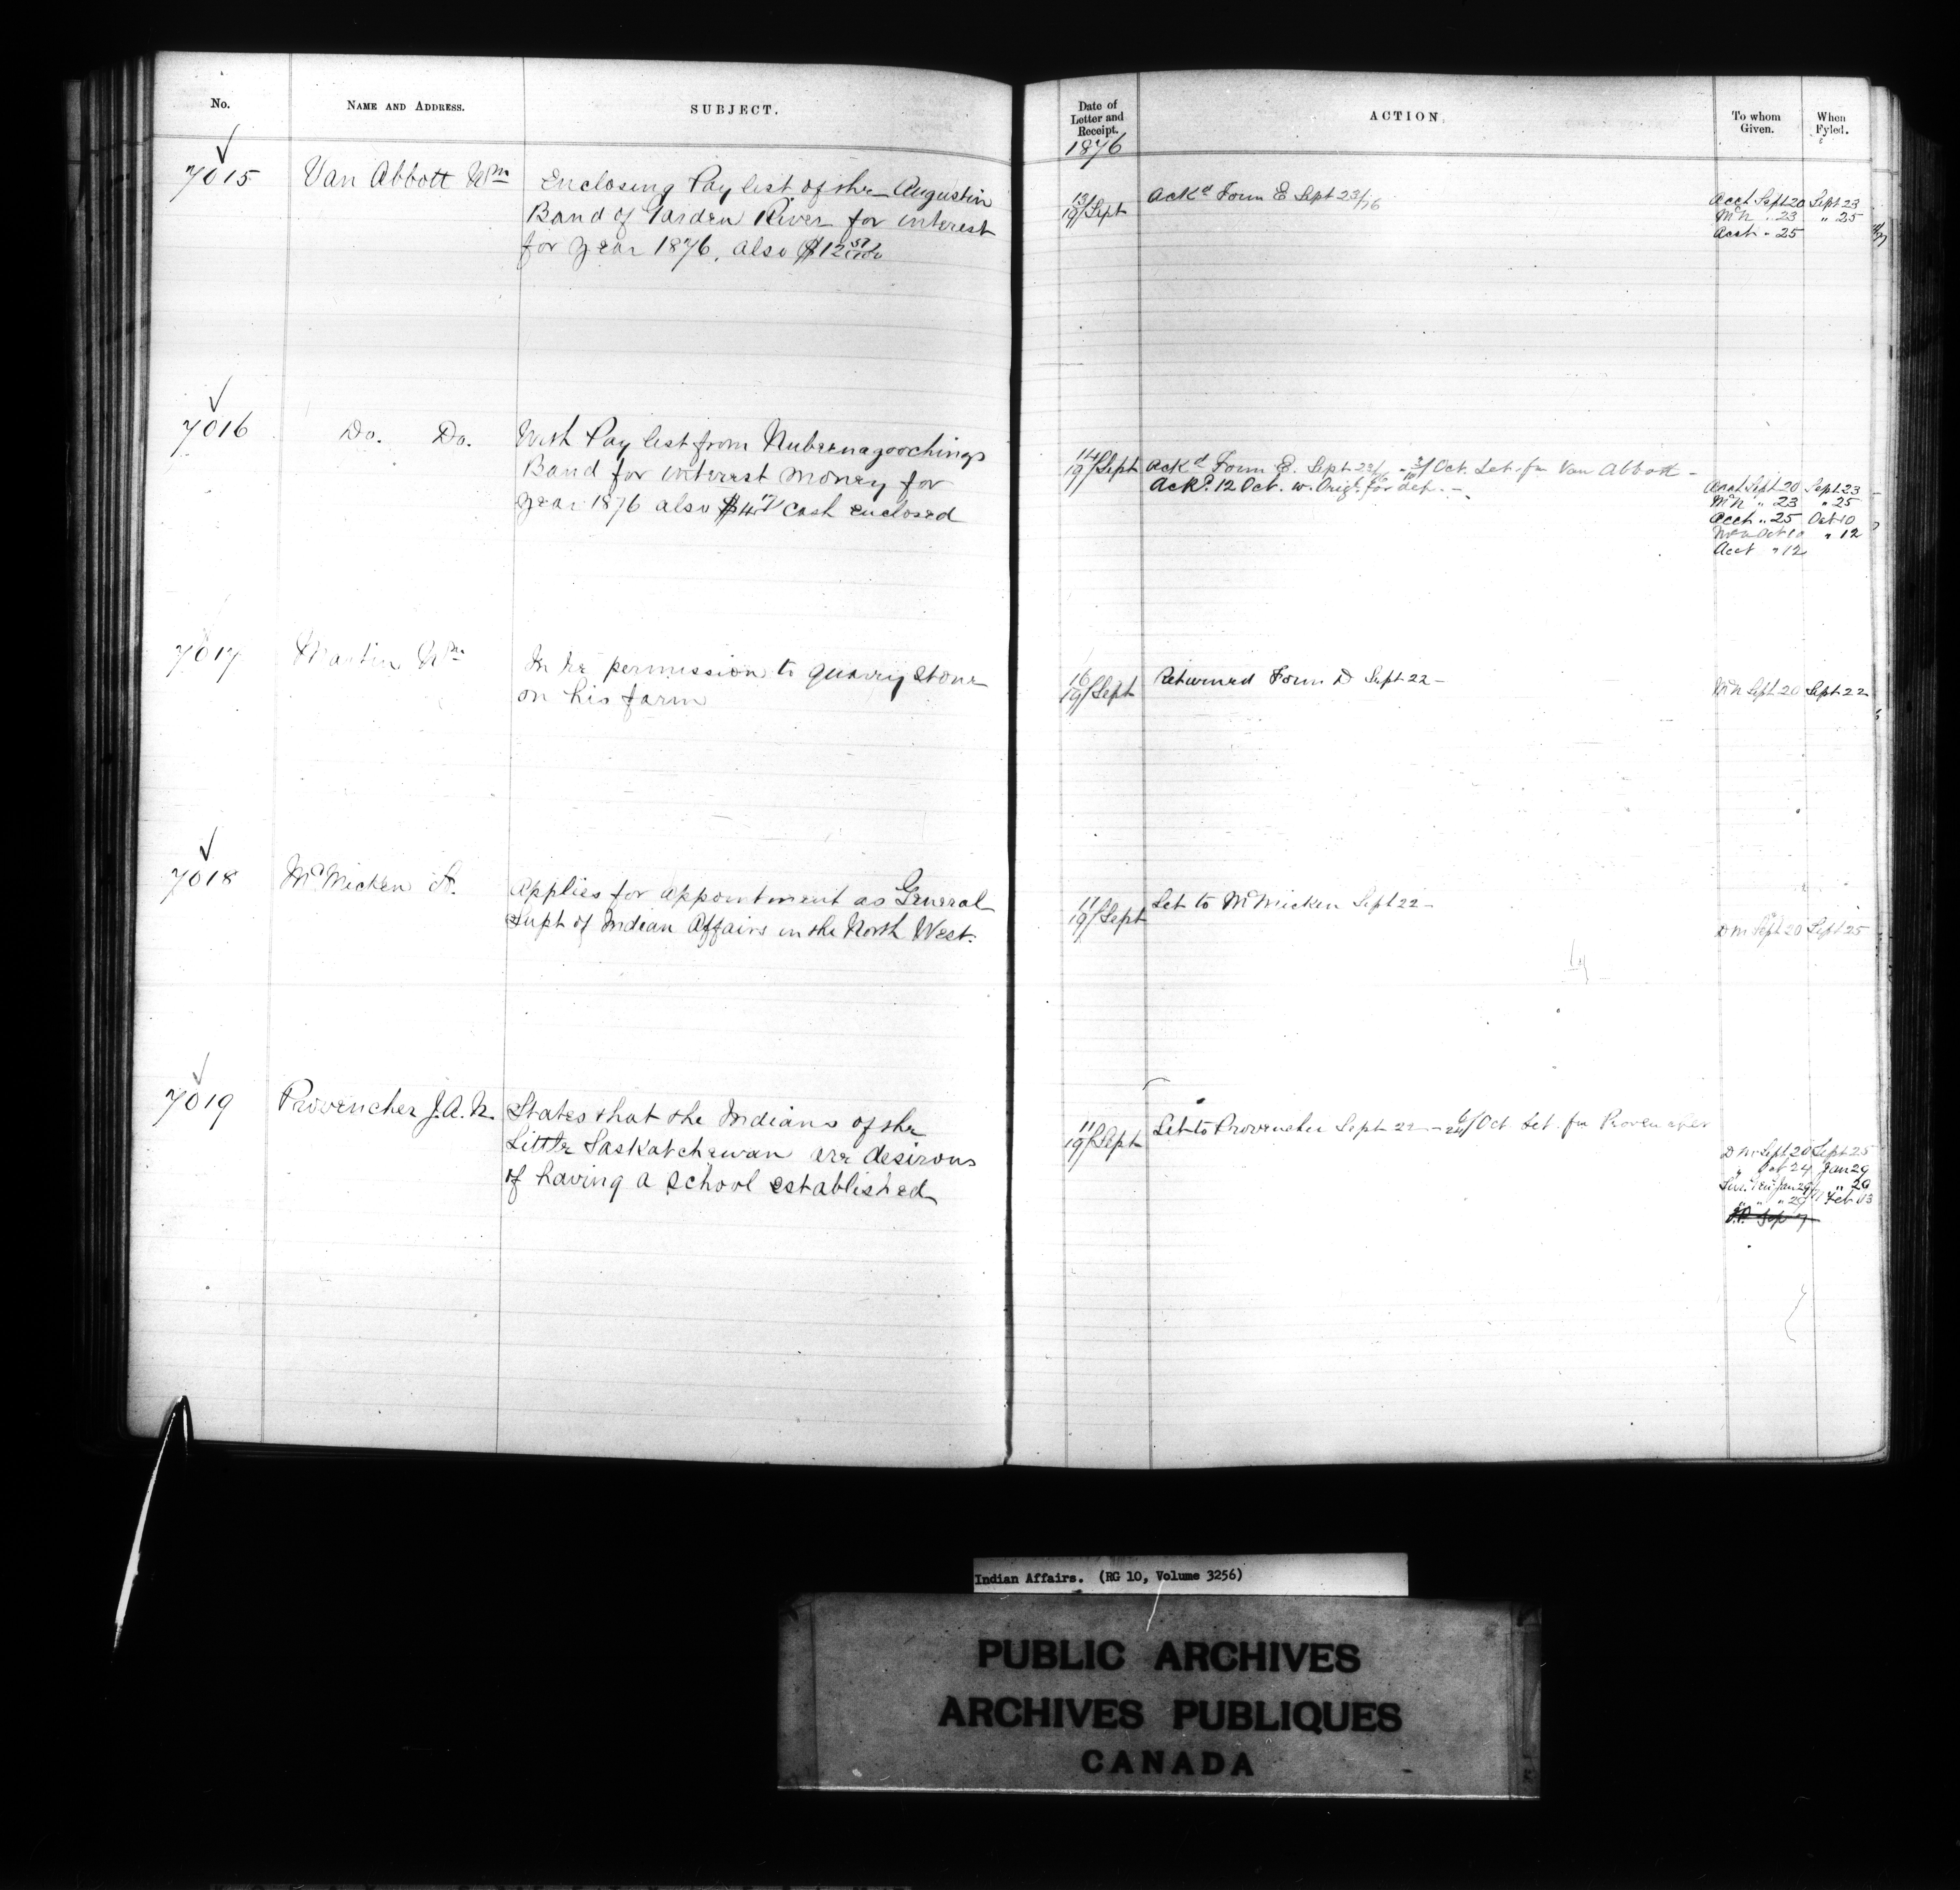 No.
NAME AND ADDRESS.
SUBJECT.
Date of
Letter and
Receipt.
ACTION.
To whom
Given.
When
Fyled.
1876
7015
Van Abbott Wm
Enclosing Pay list of the Augustin
Band of Garden River for interest
for year 1876, also $12 51/100
13/19/Sept
Ackd Form E Sept 23/76
Acct Sept 20 Sept 23
McN " 23 " 25
Acct " 25
7016
Do. Do.
With Pay list from Nubernagoochings
Band for interest money for
year 1876 also cash enclosed
14/19/Sept
Ackd Form E. Sept 23/76 - Oct. Let. fm Van Abbott -
Ackd. 12 Oct. w. Orig. for dep. -
Acct Sept 20 Sept 23
McN " 23 " 25
Acct " 25 Oct 10
Oct 10 " 12
Acct " 12
7017
Martin Wm
In re permission to quarry stone
on his farm
16/19/Sept
Returned Form D Sept 22 -
McN Sept 20 Sept 22
7018
McMicken A.
Applies for appointment as General
Supt of Indian Affairs in the North West.
11/19/Sept
Let to McMicken Sept 22 -
DM Sept 20 Sept 25
7019
Provencher J.A.N.
States that the Indians of the
Little Saskatchewan are desirous
of having a school established
11/19/Sept
Let to Provencher Sept 22 - 6/24/Oct Let. fm Provencher
DM Sept 20 Sept 25
" Oct 24 Jan 29
Jan 29 " 29
" 29 Feb 13
Indian Affairs. (RG 10, Volume 3256)
PUBLIC ARCHIVES
ARCHIVES PUBLIQUES
CANADA